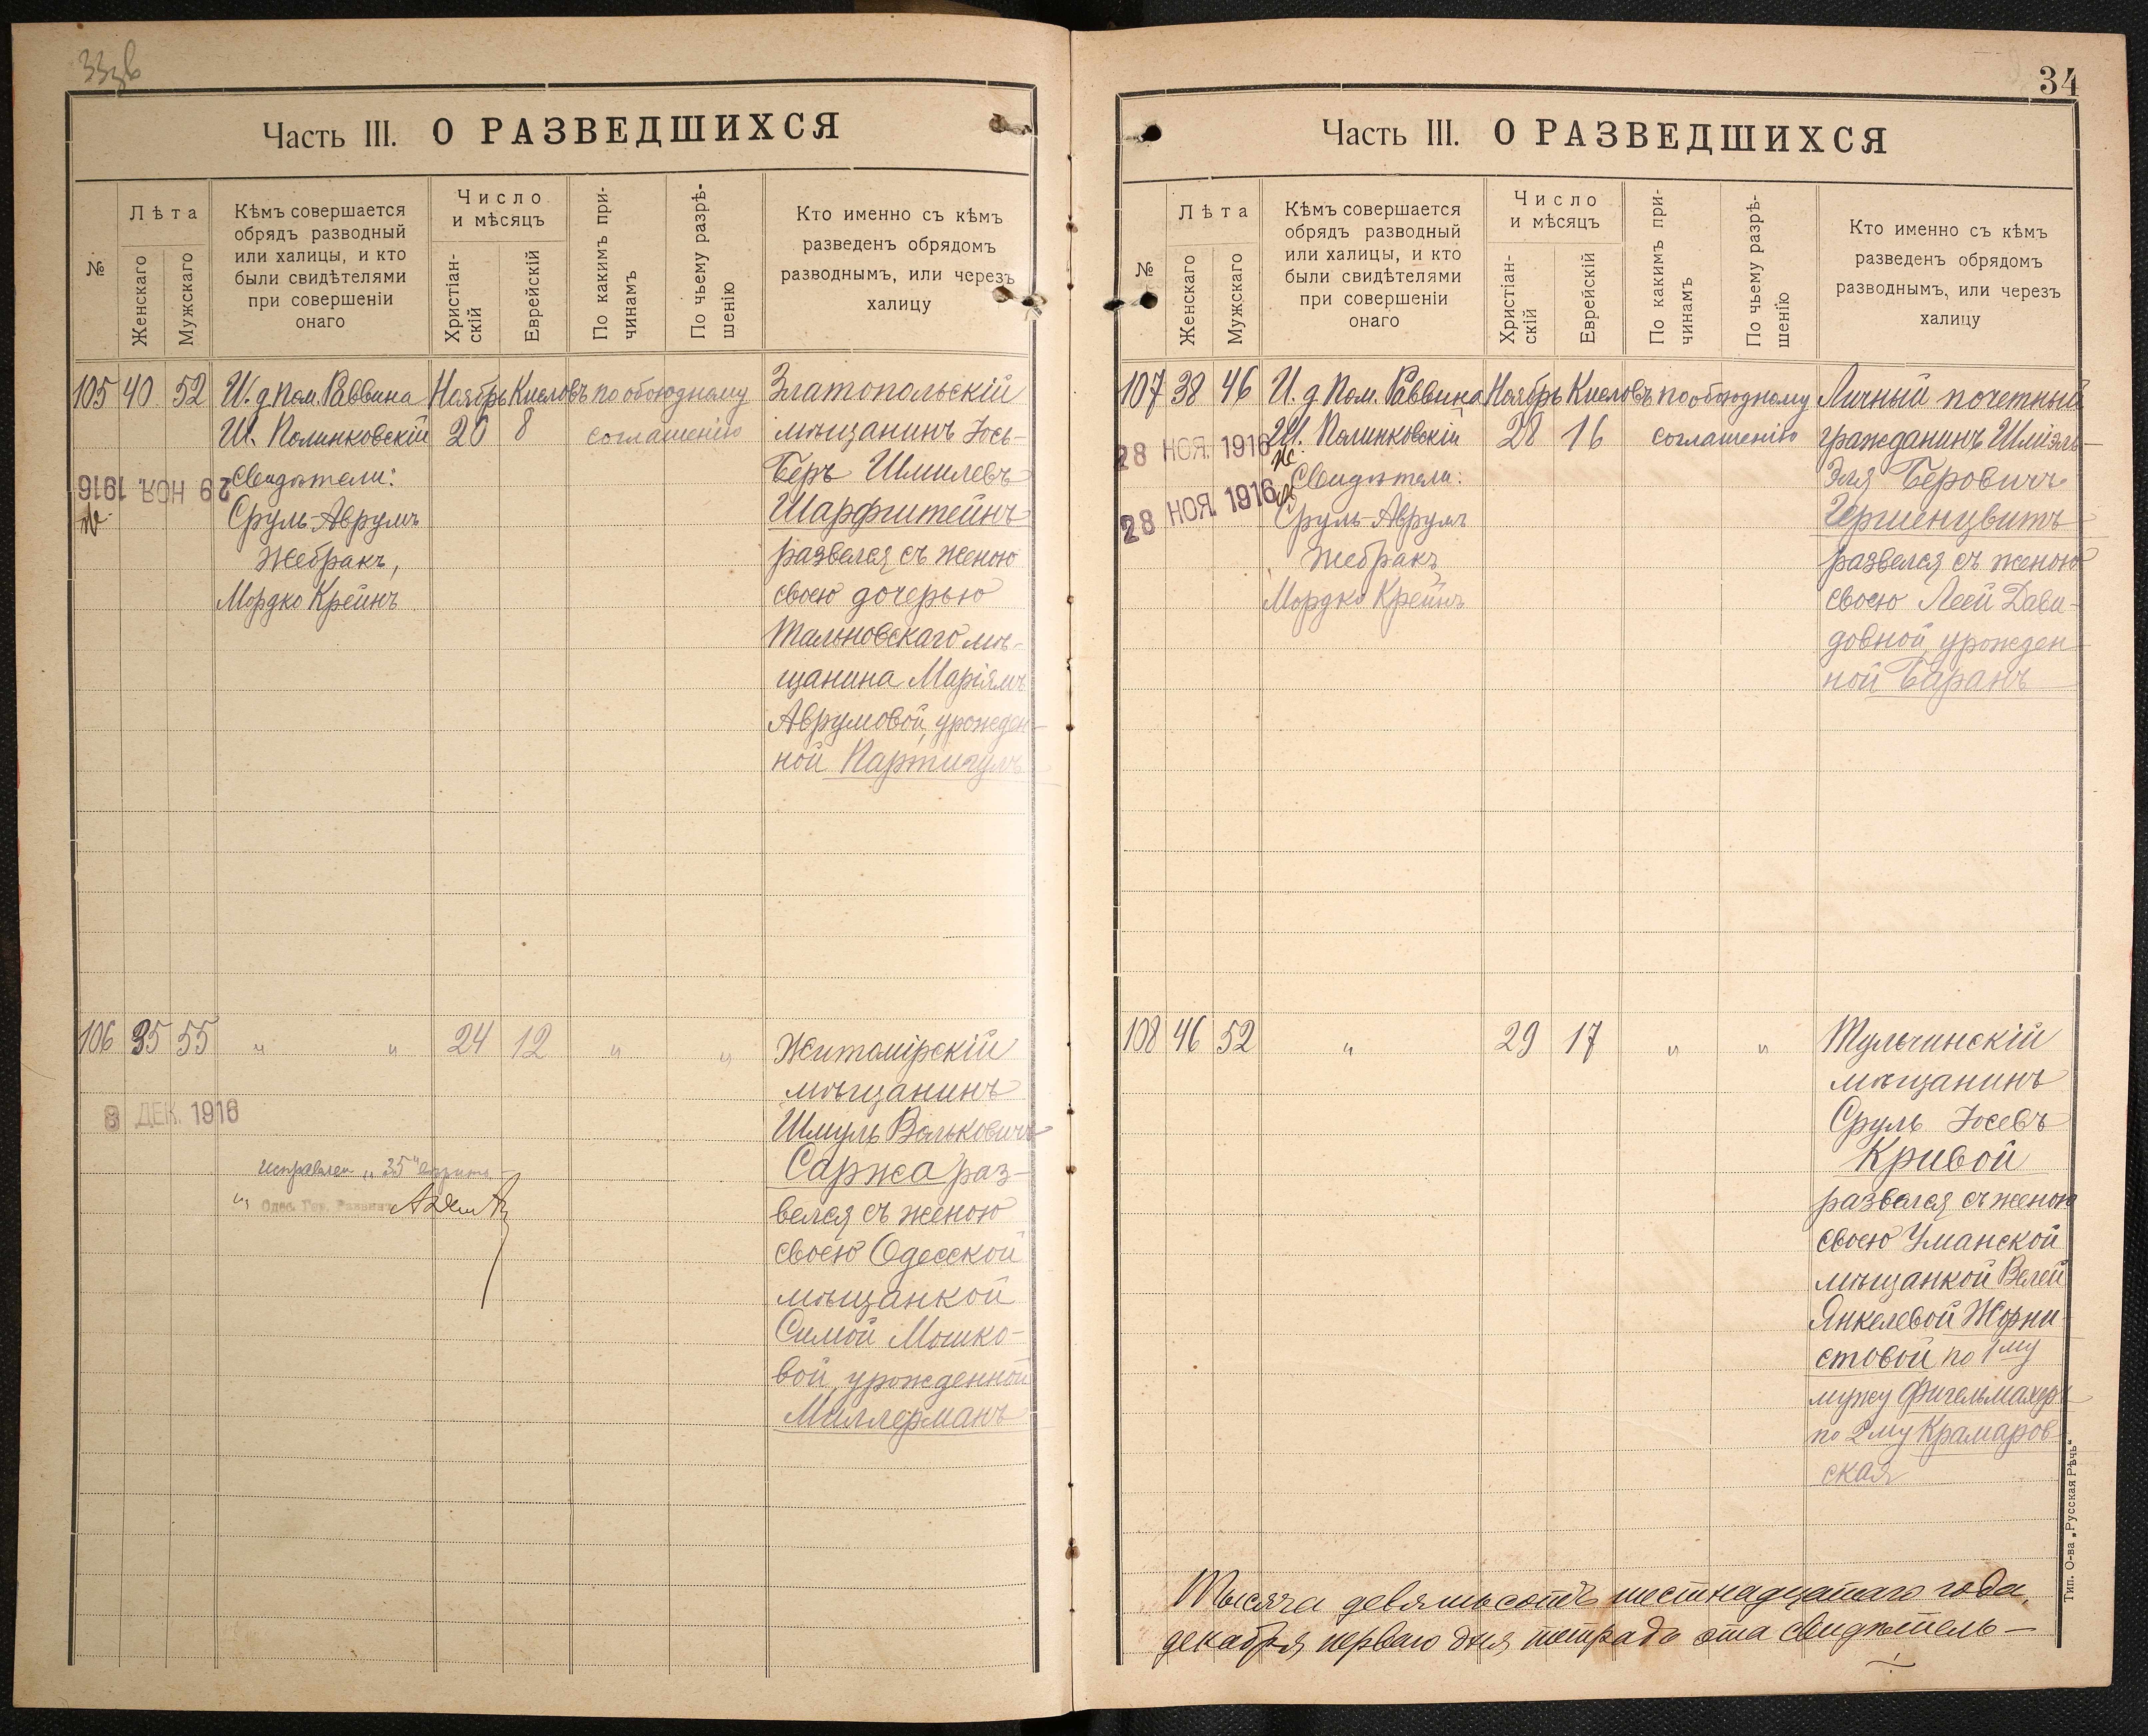 Часть III. О РАЗВЕДШИХСЯ
№
Лѣта
Женскаго
Мужскаго
Кѣмъ совершается
обрядъ разводный
или халицы, и кто
были свидѣтелями
при совершеніи
онаго
Число
и мѣсяцъ
Христіан-
скій
Еврейскій
По какимъ при-
чинамъ
По чьему разрѣ-
шенію
Кто именно съ кѣмъ
разведенъ обрядомъ
разводнымъ, или черезъ
халицу
105 40 52
И. д. Пом. Раввина
Ш. Полинковскій
Свидѣтели:
Сруль-Аврумъ
Жебракъ,
Мордко Крейнъ
Ноябрь Кисловъ
20 8
по обоюдному
соглашенію
Златопольскій
мѣщанинъ Іось-
Беръ Шмилевъ
Шарфштейнъ
развелся съ женою
своею дочерью
Тальновскаго мѣ-
щанина Маріямъ
Аврумовой, урожден-
ной Партигулъ
29 НОЯ. 1916
106 35 55 " " 24 12 " "
Житомірскій
мѣщанинъ
Шмуль Вольковичъ
Саржа раз-
велся съ женою
своею Одесской
мѣщанкой
Симой Мошко-
вой, урожденной
Миллерманъ
8 ДЕК. 1916
исправлен. "35"
Одес. Гор. Раввинъ
34
Часть III. О РАЗВЕДШИХСЯ
№
Лѣта
Женскаго
Мужскаго
Кѣмъ совершается
обрядъ разводный
или халицы, и кто
были свидѣтелями
при совершеніи
онаго
Число
и мѣсяцъ
Христіан-
скій
Еврейскій
По какимъ при-
чинамъ
По чьему разрѣ-
шенію
Кто именно съ кѣмъ
разведенъ обрядомъ
разводнымъ, или черезъ
халицу
107 38 46
И. д. Пом. Раввина
Ш. Полинковскій
Свидѣтели:
Сруль-Аврумъ
Жебракъ
Мордко Крейнъ
Ноябрь Кисловъ
28 16
по обоюдному
соглашенію
Личный почетный
гражданинъ Шміэль-
Эля Беровичъ
Гершенцвитъ
развелся съ женою
своею Леей Дави-
довной, урожден-
ной Баранъ
28 НОЯ. 1916
28 НОЯ. 1916
108 46 52 " 29 17 " "
Тульчинскій
мѣщанинъ
Сруль Іосевъ
Кривой
развелся съ женою
своею Уманской
мѣщанкой Велей
Янкелевой Жорни-
стовой по 1му
мужу Фигельмахеръ
по 2му Крамаров-
ская
Тысяча девятьсотъ шестнадцатаго года,
декабря перваго дня тетрадь эта свидѣтель-
Тип. О-ва „Русская Рѣчь“